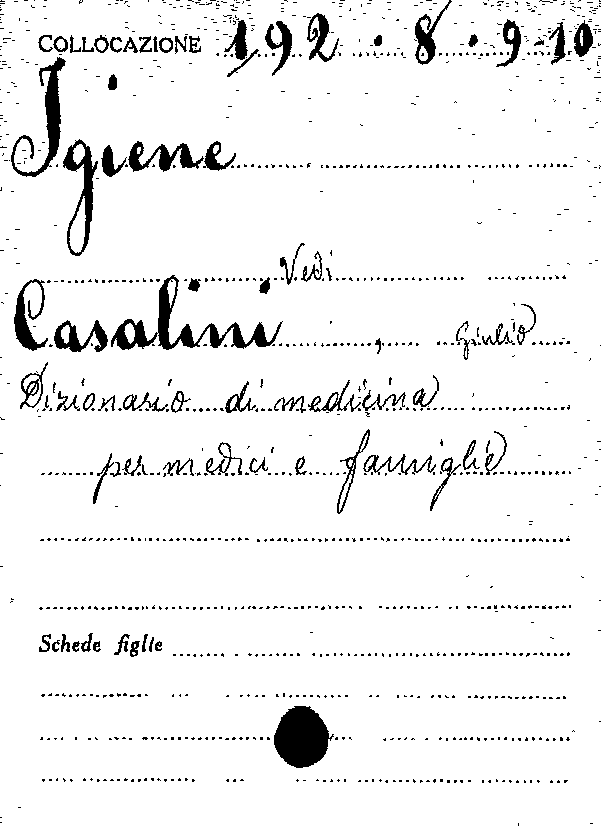 COLLOCAZIONE 192 · 8 · 9-10
Igiene
Vedi
Casalini, Giulio
Dizionario di medicina
per medici e famiglie
Schede figlie